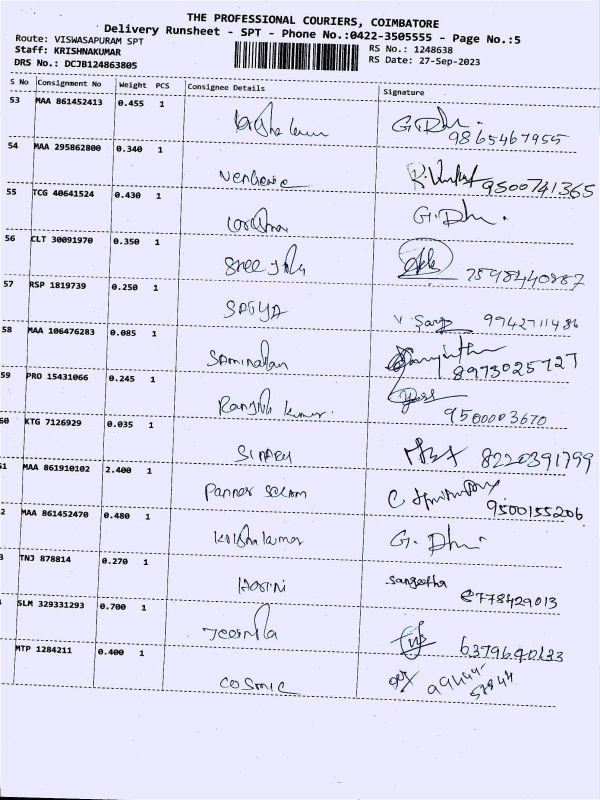 THE PROFESSIONAL COURIERS, COIMBATORE
Delivery Runsheet - SPT - Phone No.:0422-3505555 - Page No.:5
Route: VISWASAPURAM SPT
Staff: KRISHNAKUMAR
DRS No.: DCJB124863805
RS No.: 1248638
RS Date: 27-Sep-2023
S No Consignment No Weight PCS Consignee Details Signature
53 MAA 861452413 0.455 1 G.Dh.
9865467955
54 MAA 295862800 0.340 1 9500741365
55 TCG 40641524 0.430 1 G.Dh.
56 CLT 30091970 0.350 1 Sree
7598440887
57 RSP 1819739 0.250 1 SATYA 9942711486
58 MAA 106476283 0.085 1
8973025727
59 PRO 15431066 0.245 1 Ranjith kumar
9500003670
60 KTG 7126929 0.035 1 8220391799
61 MAA 861910102 2.400 1 Panner selvam
9500155206
2 MAA 861452470 0.480 1 krishna kumar G. Dh.
3 TNJ 878814 0.270 1 Harini Sangeetha
8778429013
SLM 329331293 0.700 1 6379690133
MTP 1284211 0.400 1 COSMIC 99444
57944